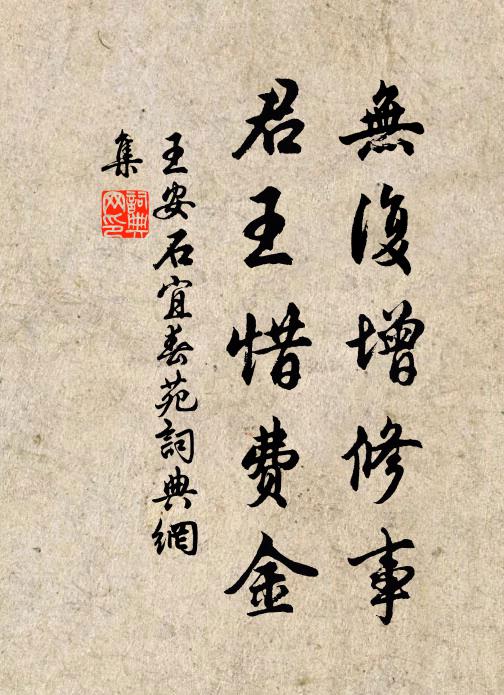 無復增修事
君王惜費金
王安石宜春苑詞典網
集
詞典
网印